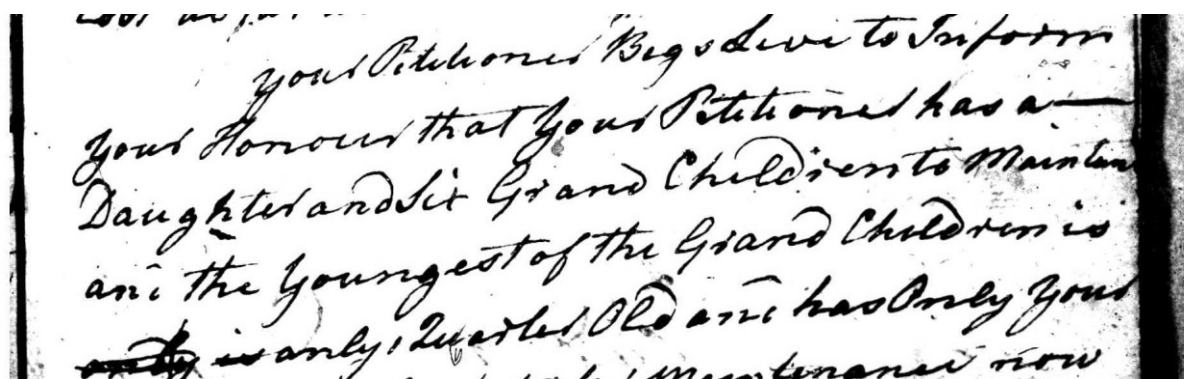 your Petitioner Begs Live to Inform
your Honour that your Petitioner has a —
Daughter and Six Grand Children to Maintain
and the Youngest of the Grand Children is
only is only 1 Quarter Old and has Only your
Maintenance now